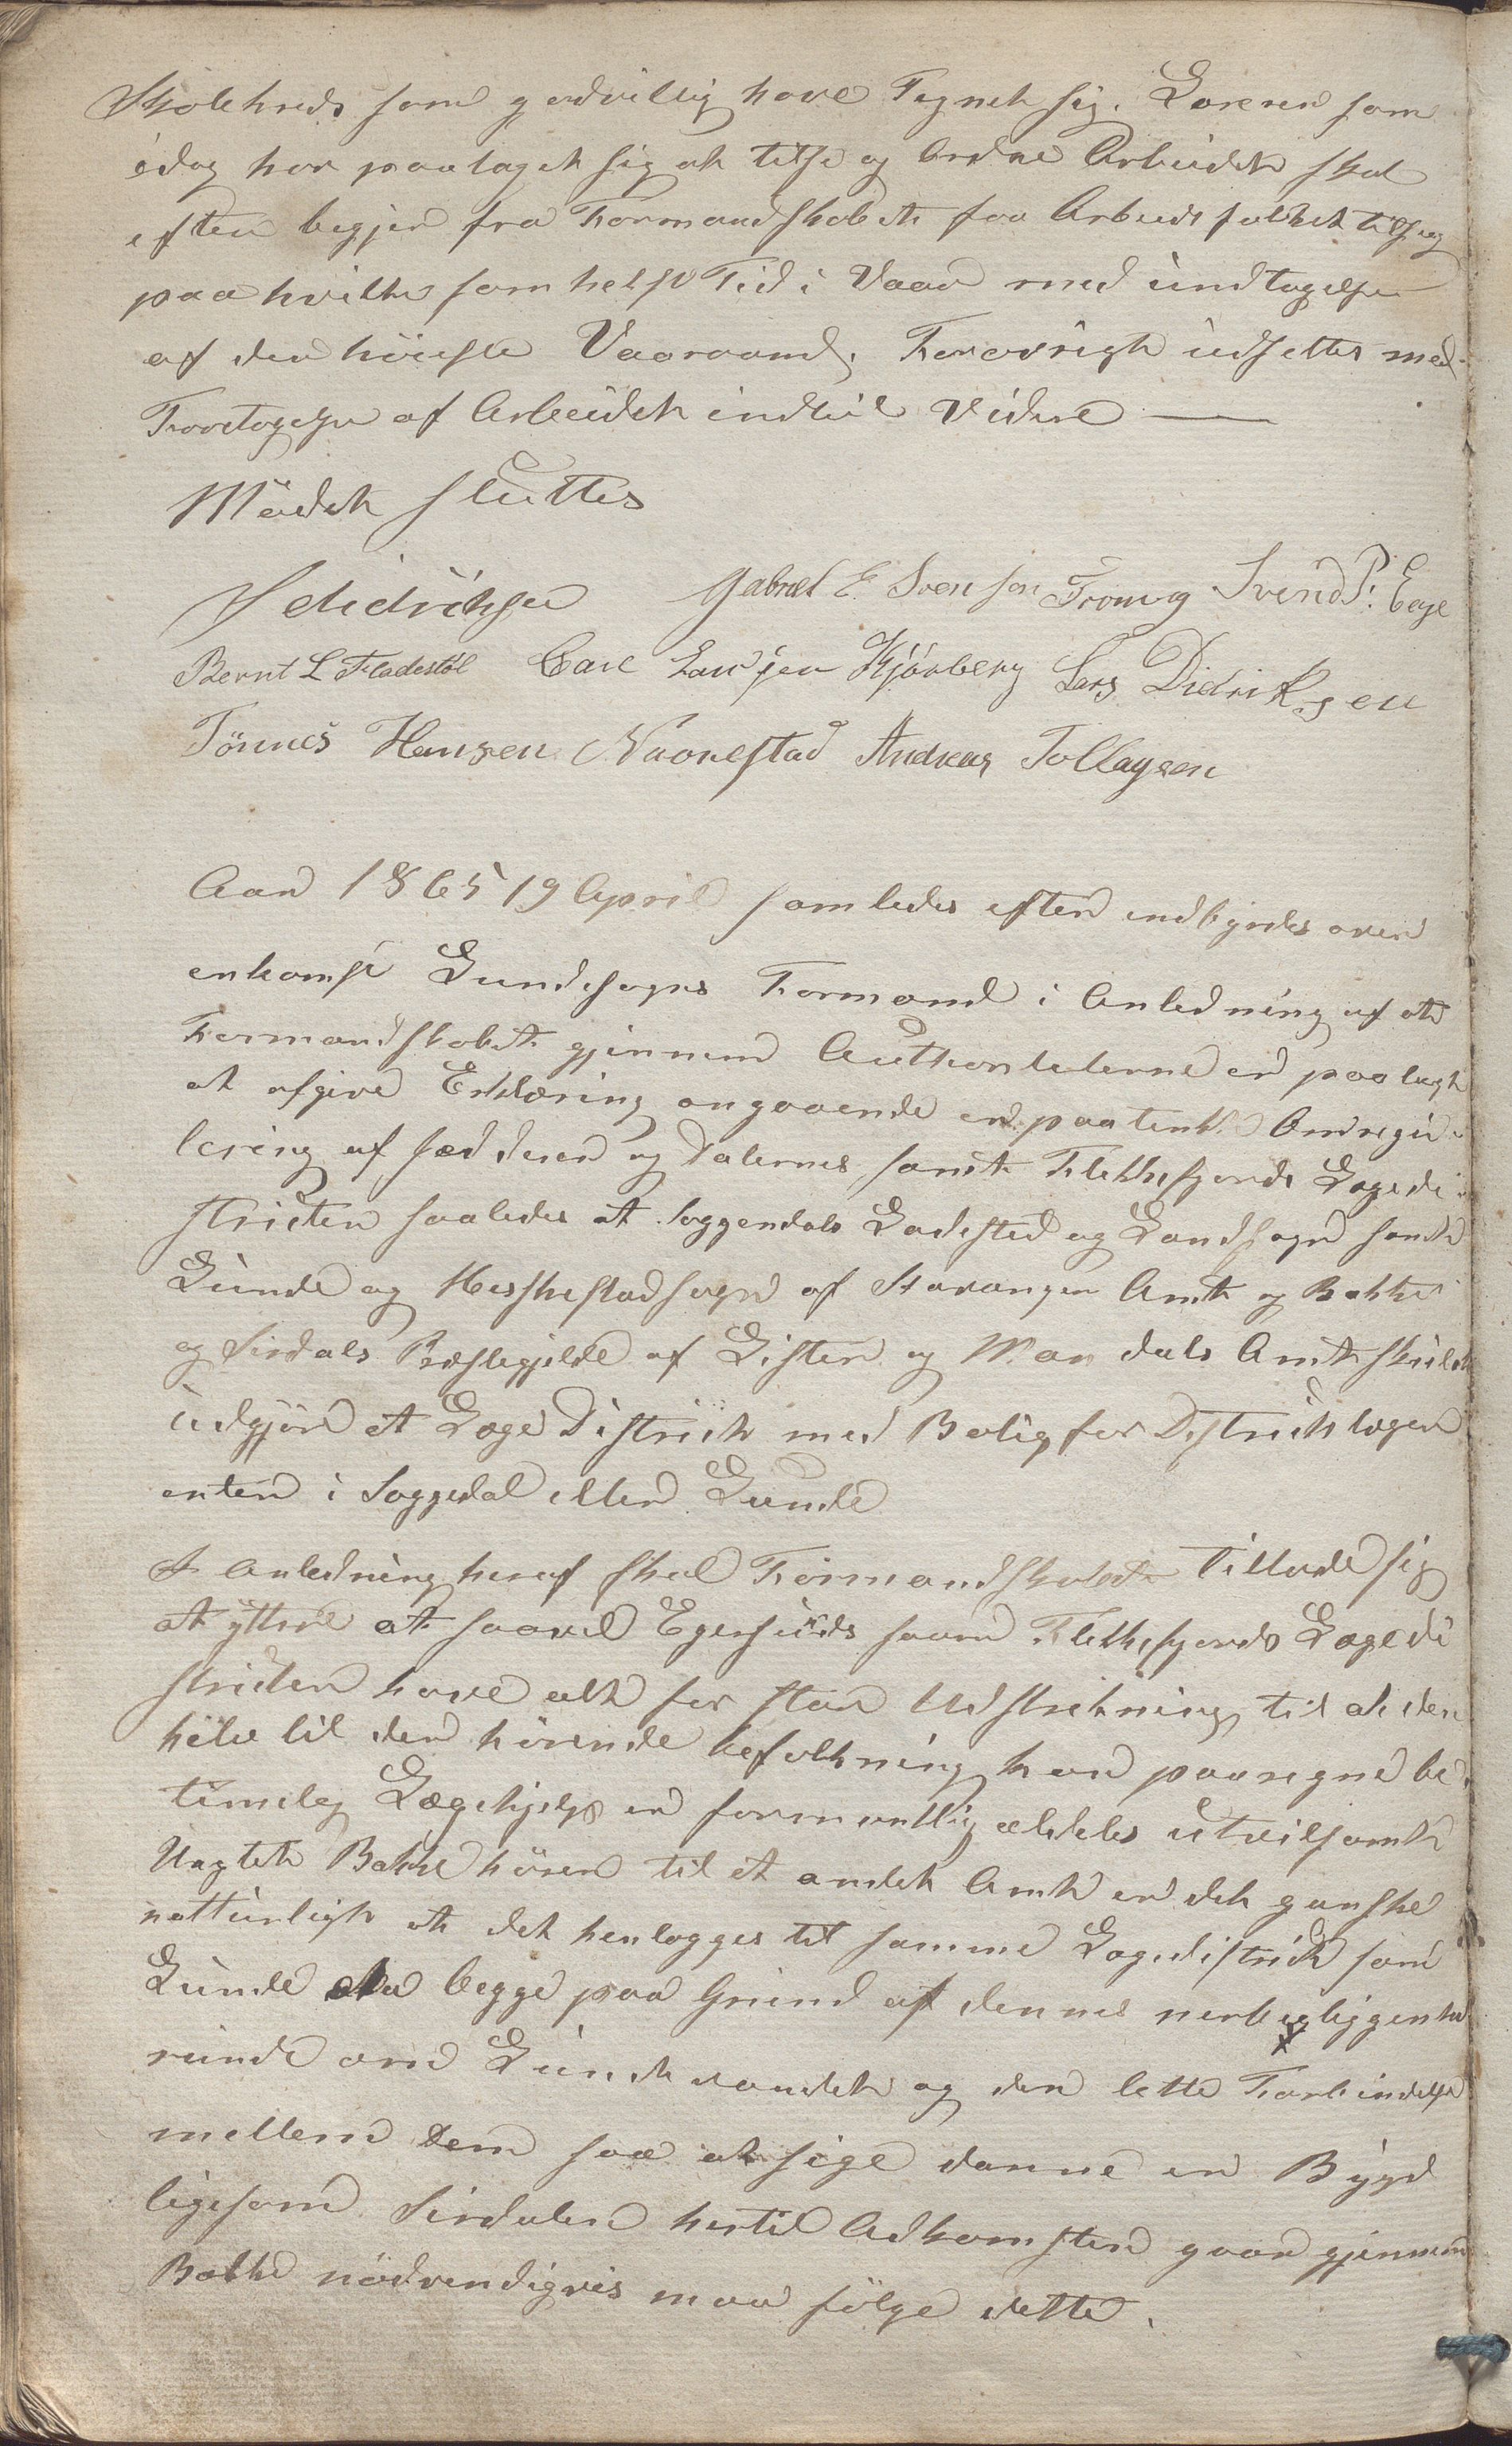 Skolekreds som godvillig have Tegnet sig. Læreren som
idag har paataget sig at tilse og Ordne Arbeidet skal
efter begjær fra Formandskabet faa Arbeidsfolket tilsag
paa hvilken som helst Tid i Vaar med undtagelse
af den høieste Vaaraand, Forøvrigt udsettes med
Foretagelse af Arbeidet indtil Videre —
Mødet sluttes
S Didriksen Gabriel E. Svensen Tronvig Svend P. Eeye
Bernt L Fladestöl Carl Lauritzen Kjörberg Lars Didriksen
Tönnes Hansen Naonestad Andreas Tollagsen
Aar 1865 19 April samledes efter indbyrdes over
enkomst Lundesogns Formænd i Anledning af at
Formandskabet gjennem Authoriteterne er paalagt
at afgive Erklæring angaaende en paatenkt Omregu-
lering af Jædderen og Dalernes samt Flekkefjords Lægedi-
stricter saaledes at Soggendals Ladested og Landsogn samt
Lunde og Heskestad sogn af Stavanger Amt og Bakke
og Sirdals Præstegjelde af Lister og Mandals Amt skulde
udgjøre et Læge District med Bolig for Districtslægen
enten i Soggedal eller Lunde
I Anledning heraf skal Formandskabet tillade sig
at yttre at saavel Egersunds saom Flekkefjords Lægedi
stricter have alt for stor Udstrekning til at den
hele til dem hörende befolkning kan paaregne be-
timelig Lægehjelp er formentlig aldeles utvilsomt
Uagtet Bakke hörer til et andet Amt er det ganske
natturligt at det henlægges til samme Lægedistrict som
Lunde da begge paa Grund af dennes nerbeliggenhed
rundt om Lundevandet og den lette Forbindelse
mellem Dem saa at sige danne en Bygd
ligesom Sirdalen hertil Adkomsten gaar gjennem
Bakke nödvendigvis maa fölge dette.